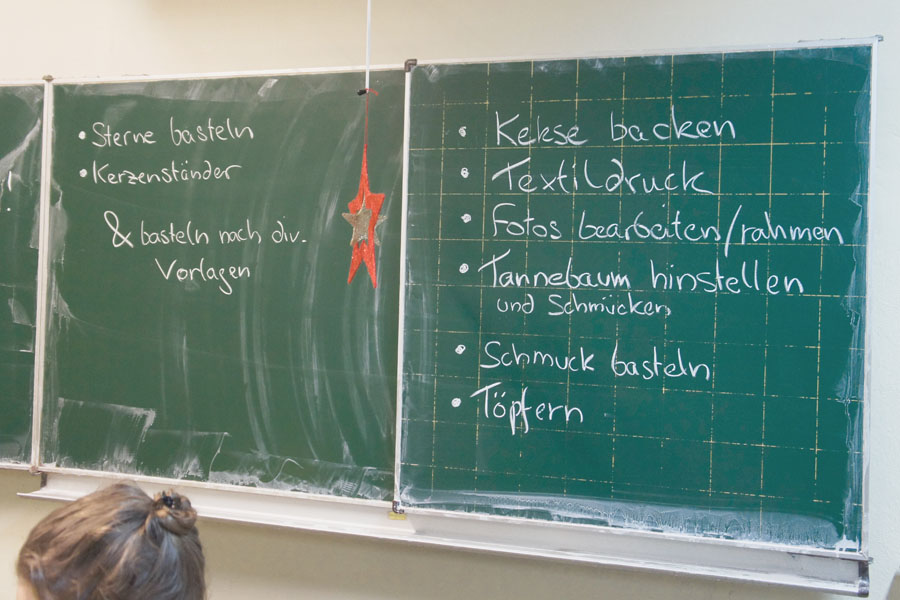 • Sterne basteln
• Kerzenständer
& basteln nach div.
Vorlagen
• Kekse backen
• Textildruck
• Fotos bearbeiten/rahmen
• Tannebaum hinstellen
und Schmücken
• Schmuck basteln
• Töpfern